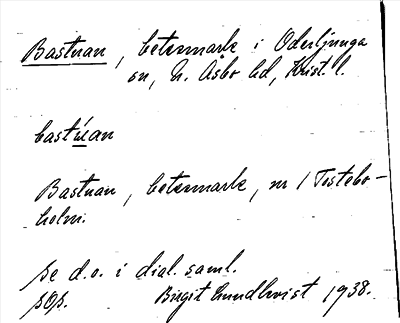 Bastuan, betesmark i Oderljunga
sn, N. Åsbo hd, Krist. l.
bastúan
Bastuan, betesmark, nr 1 Tostebo-
holm.
se d.o. i dial. saml.
Birgit Lundkvist 1938.